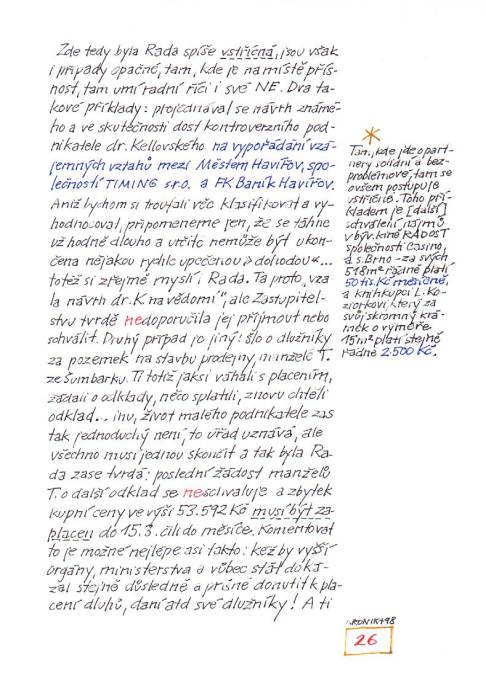 Zde tedy byla Rada spíše vstřícná, jsou však
i případy opačné, tam, kde je na místě přís-
nost, tam umí radní říci i své NE. Dva ta-
kové příklady: projednával se návrh známé-
ho a ve skutečnosti dost kontroverzního pod-
nikatele dr. Kellovského na vypořádání vzá-
jemných vztahů mezi Městem Havířov, spo-
lečností TIMING s.r.o. a FK Baník Havířov.
Aniž bychom si troufali věc klasifikovat a vy-
hodnocovat, připomeneme jen, že se táhne
už hodně dlouho a určitě nemůže být ukon-
čena nějakou rychle upečenou »dohodou«...
totéž si zřejmě myslí i Rada. Ta proto „vza-
la návrh dr. K na vědomí“, ale Zastupitel-
stvu tvrdě nedoporučila jej přijmout nebo
schválit. Druhý případ je jiný: šlo o dlužníky
za pozemek na stavbu prodejny, manželé T.
ze Šumbarku. Ti totiž jaksi váhali s placením,
žádali o odklady, něco splatili, znovu chtěli
odklad... inu, život malého podnikatele zas
tak jednoduchý není, to úřad uznává, ale
všechno musí jednou skončit a tak byla Ra-
da zase tvrdá: poslední žádost manželů
T. o další odklad se neschvaluje a zbytek
kupní ceny ve výši 53.592 Kč musí být za-
placen do 15.3. čili do měsíce. Komentovat
to je možné nejlépe asi takto: kéž by vyšší
orgány, ministerstva a vůbec stát doká-
zal stejně důsledně a přísně donutit k pla-
cení dluhů, daní atd své dlužníky! A ti
*
Tam, kde jde o part-
nery solidní a bez-
problémové, tam se
ovšem postupuje
vstřícně. Toho pří-
kladem je [další]
schválení nájmů
v býv. kině RADOST
společnosti Casino,
a.s. Brno - za svých
518 m² řádně platí
50 tis. Kč měsíčně,
a knihkupci L. Ko-
ziorkovi, který za
svůj skromný krá-
mek o výměře
15 m² platí stejně
řádně 2.500 Kč.
KRONIKA 98
26